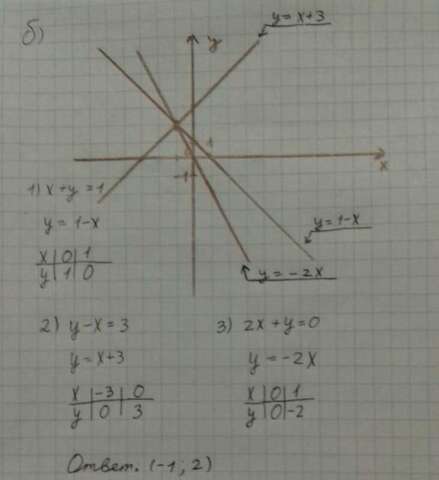 б)
y = x+3
y
1
x
-1
1) x+y=1
y = 1-x
x | 0 | 1
y | 1 | 0
y = 1-x
y = -2x
2) y-x=3
y = x+3
x | -3 | 0
y | 0 | 3
3) 2x+y=0
y = -2x
x | 0 | 1
y | 0 | -2
Ответ. (-1; 2)